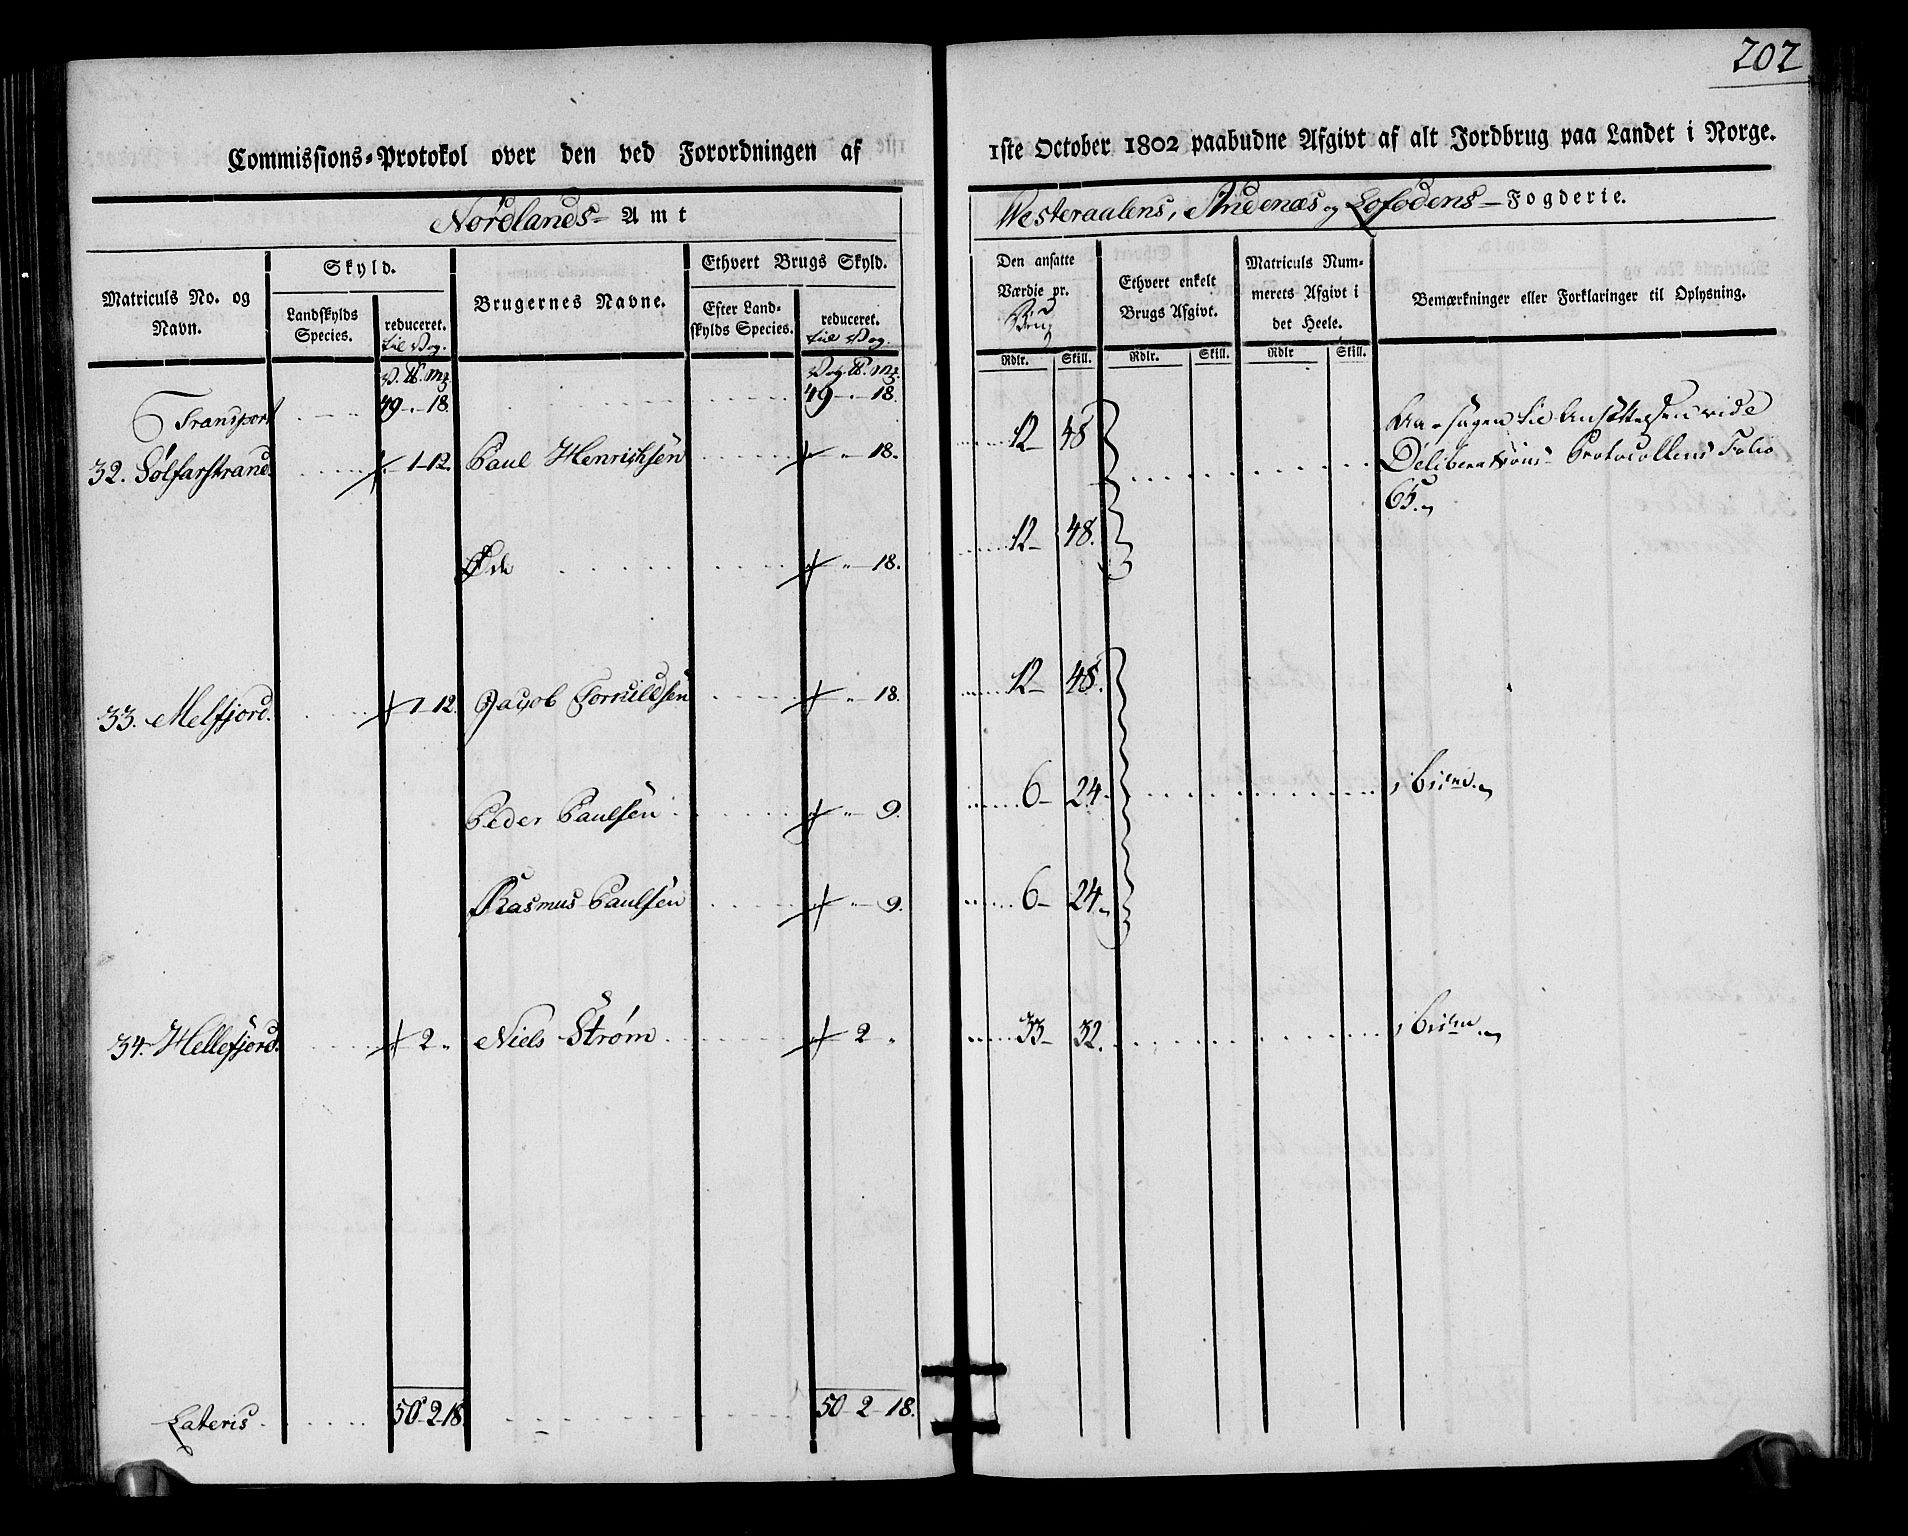 202
Commissions=Protokol over den ved Forordningen af
1ste October 1802 paabudne Afgivt af alt Jordbrug paa Landet i Norge.
Nordlands= Amt
Westeraalens, Andenæs og Lofodens – Fogderie.
Matriculs No. og Navn.
Skyld.
Landskylds Species.
reduceret. til Vog.
Brugernes Navne.
Ethvert Brugs Skyld.
Efter Landskylds Species.
reduceret. til Vog.
Den ansatte Værdie pr. Brug
Ethvert enkelt Brugs Afgivt.
Matriculs Nummerets Afgivt i det Heele.
Bemærkninger eller Forklaringer til Oplysning.
Rdlr. Skill. Rdlr. Skill. Rdlr Skill.
V. ℔. mꝝ Vog. ℔. mꝝ.
Transport 49 – . – 18. 49 – . – 18.
32. Sølfarstrand. – 1 – 12. Paul Henrichsen – „ – 18. 12 – 48 Aarsagen til Ansættelsen vide
Deliberations Protocollens Folio
65.
Øde – „ – 18. 12 – 48.
33. Melfjord. 1 12. Jacob Torchildsen – „ – 18. 12 – 48.
Peder Paulsen – „ – 9. 6 – 24. ibiem.
Rasmus Paulsen – „ – 9. 6 – 24.
34. Hellefjord. 2 „ Niels Strøm 2 „ 33 – 32. ibiem.
Lateris 50 – 2 – 18. 50 – 2 – 18.